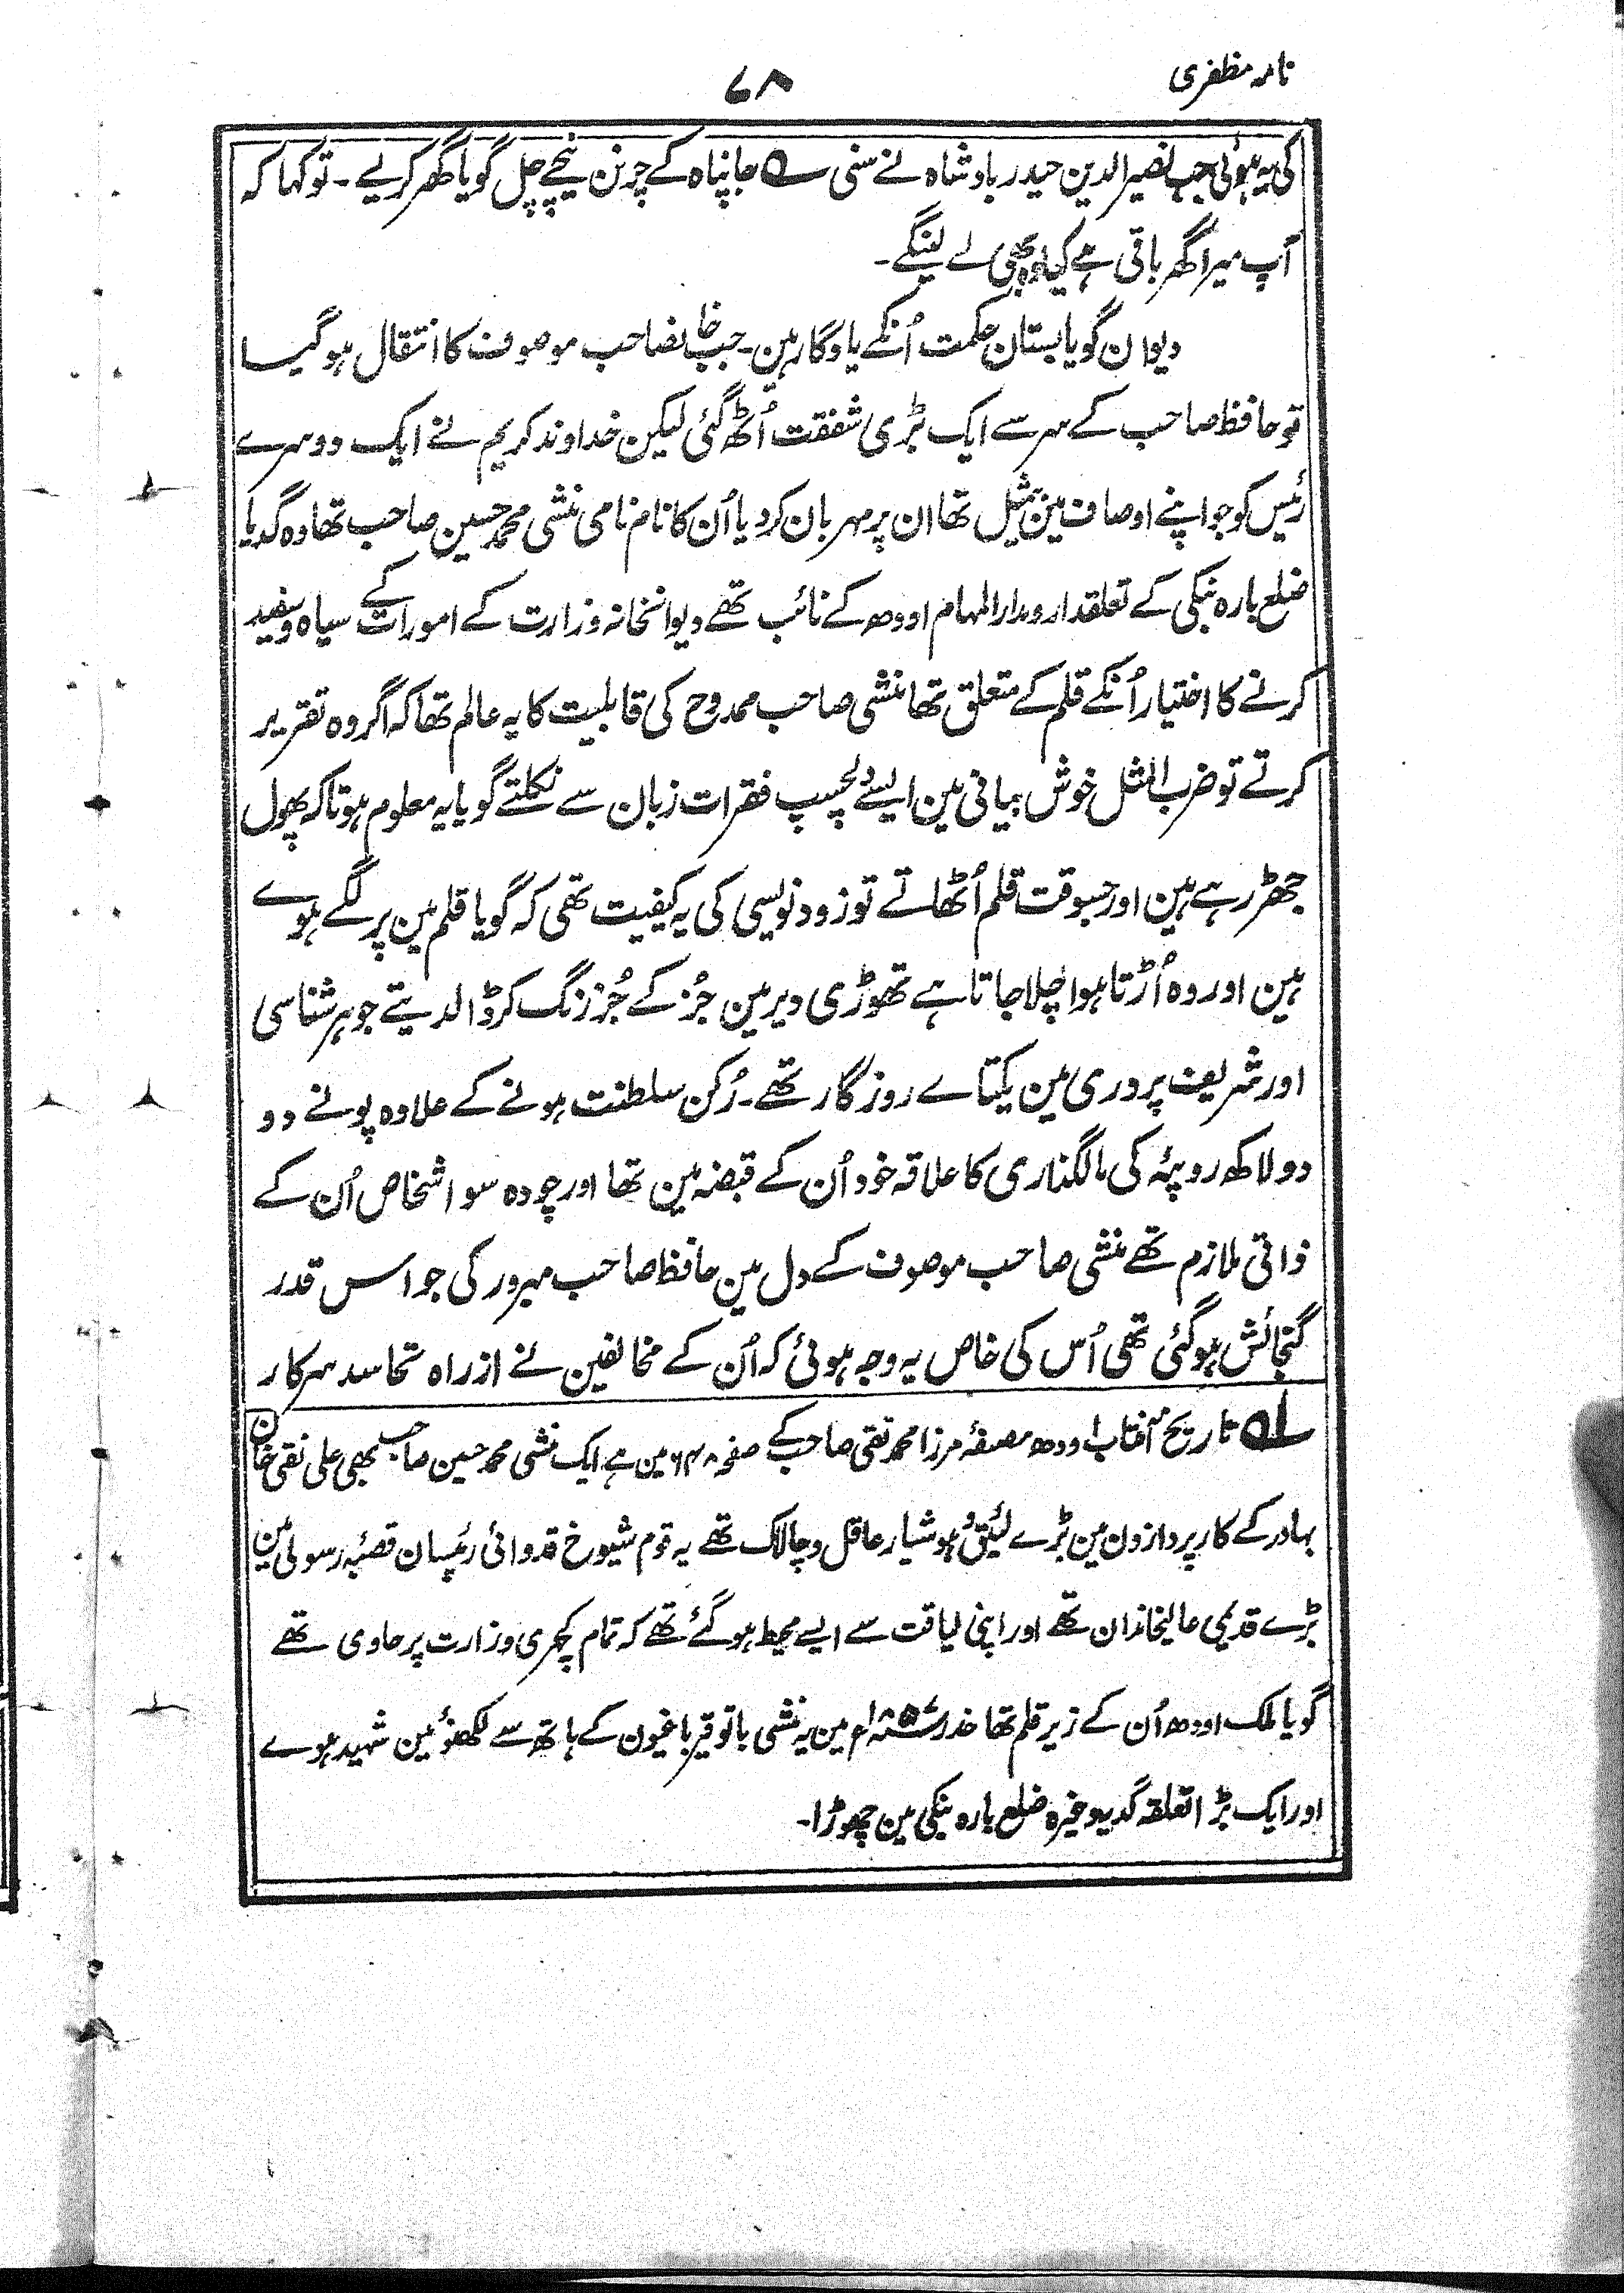 نامہ مظفری
۶۸
کی یہ ہوئی جب نصیر الدین حیدر بادشاہ نے سنی ؎ جانپناہ کے چرنن نیچے چل گویا گھر کریے۔ تو کہا کہ
آپ میرا گھر باقی ہے کیا وہ بھی لے لینگے۔
دیوان گویا بستان حکمت اُنکے یادگار ہین۔ جب خانصاحب موصوف کا انتقال ہوگیا
تو حافظ صاحب کے سر سے ایک بڑی شفقت اُٹھ گئی لیکن خداوند کریم نے ایک دوسرے
رئیس کو جو اپنے اوصاف مین بیمثیل تھا ان پر مہربان کر دیا اُن کا نام نامی منشی محمد حسین صاحب تھا وہ گدیا
ضلع بارہ بنکی کے تعلقدار و مدار المہام اودھ کے نائب تھے دیوانخانہ وزارت کے امورات کے سیاہ و سفید
کرنے کا اختیار اُنکے قلم کے متعلق تھا منشی صاحب ممدوح کی قابلیت کا یہ عالم تھا کہ اگر وہ تقریر
کرتے تو ضرب المثل خوش بیانی مین ایسے دلچسپ فقرات زبان سے نکلتے گویا یہ معلوم ہوتا کہ پھول
جھڑ رہے ہین اور جسوقت قلم اُٹھاتے تو زود نویسی کی یہ کیفیت تھی کہ گویا قلم مین پر لگے ہوے
ہین اور وہ اُڑتا ہوا چلا جاتا ہے تھوڑی دیر مین جُز کے جُز زنگ کر ڈالدیتے جوہر شناسی
اور شریف پروری مین یکتاے روزگار تھے۔ رُکن سلطنت ہونے کے علاوہ پونے دو
دو لاکھ روپئہ کی مالگذاری کا علاقہ خود اُن کے قبضہ مین تھا اور چودہ سو اشخاص اُن کے
ذاتی ملازم تھے منشی صاحب موصوف کے دل مین حافظ صاحب مبرور کی جو اس قدر
گنجائش ہوگئی تھی اُس کی خاص یہ وجہ ہوئی کہ اُن کے مخالفین نے از راہ تحاسد سرکار
؎۱ تاریخ آفتاب اودھ مصنفۂ مرزا محمد تقی صاحب کے صفحہ ۶۴۸ مین ہے ایک منشی محمد حسین صاحب بھی علی نقی خان
بہادر کے کارپردازون مین بڑے لئیق و ہوشیار عاقل و چالاک تھے یہ قوم شیوخ قدوائی رئیسان قصبۂ رسولی مین
بڑے قدیمی عالیخاندان تھے اور اپنی لیاقت سے ایسے محیط ہو گئے تھے کہ تمام کچہری وزارت پر حاوی تھے
گویا ملک اودھ اُن کے زیر قلم تھا غدر ۱۸۵۷ء مین یہ منشی باتوقیر باغیون کے ہاتھ سے لکھنؤ مین شہید ہوے
اور ایک بڑا تعلقہ گدیہ وغیرہ ضلع بارہ بنکی مین چھوڑا۔